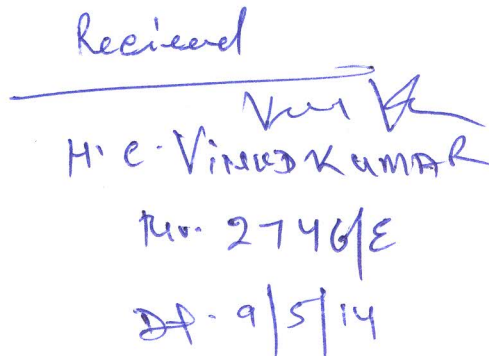 Recieved
H. C. VINOD KUMAR
No. 2746/E
Dt. 9/5/14